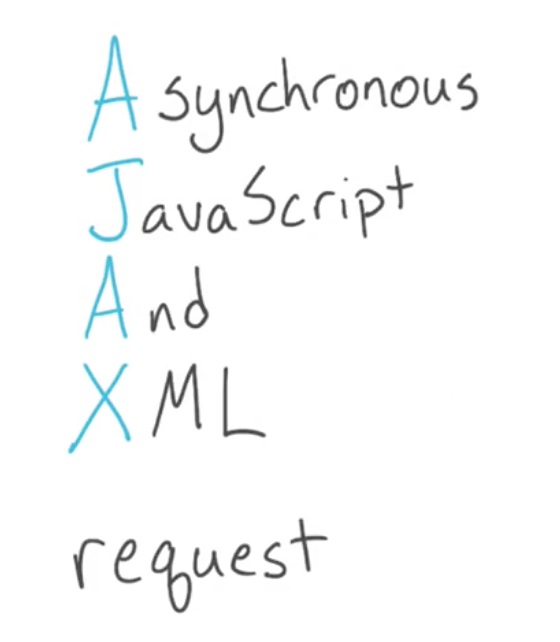 Asynchronous
JavaScript
And
XML
request